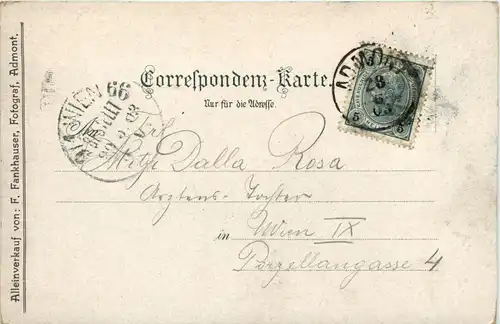 Alleinverkauf von: F. Fankhauser, Fotograf, Admont.
Correspondenz-Karte.
Nur für die Adresse.
ADMONT
5 5
WIEN 66
Frl.
Mitzi Dalla Rosa
Arztens-Tochter
in Wien IX
Porzellangasse 4